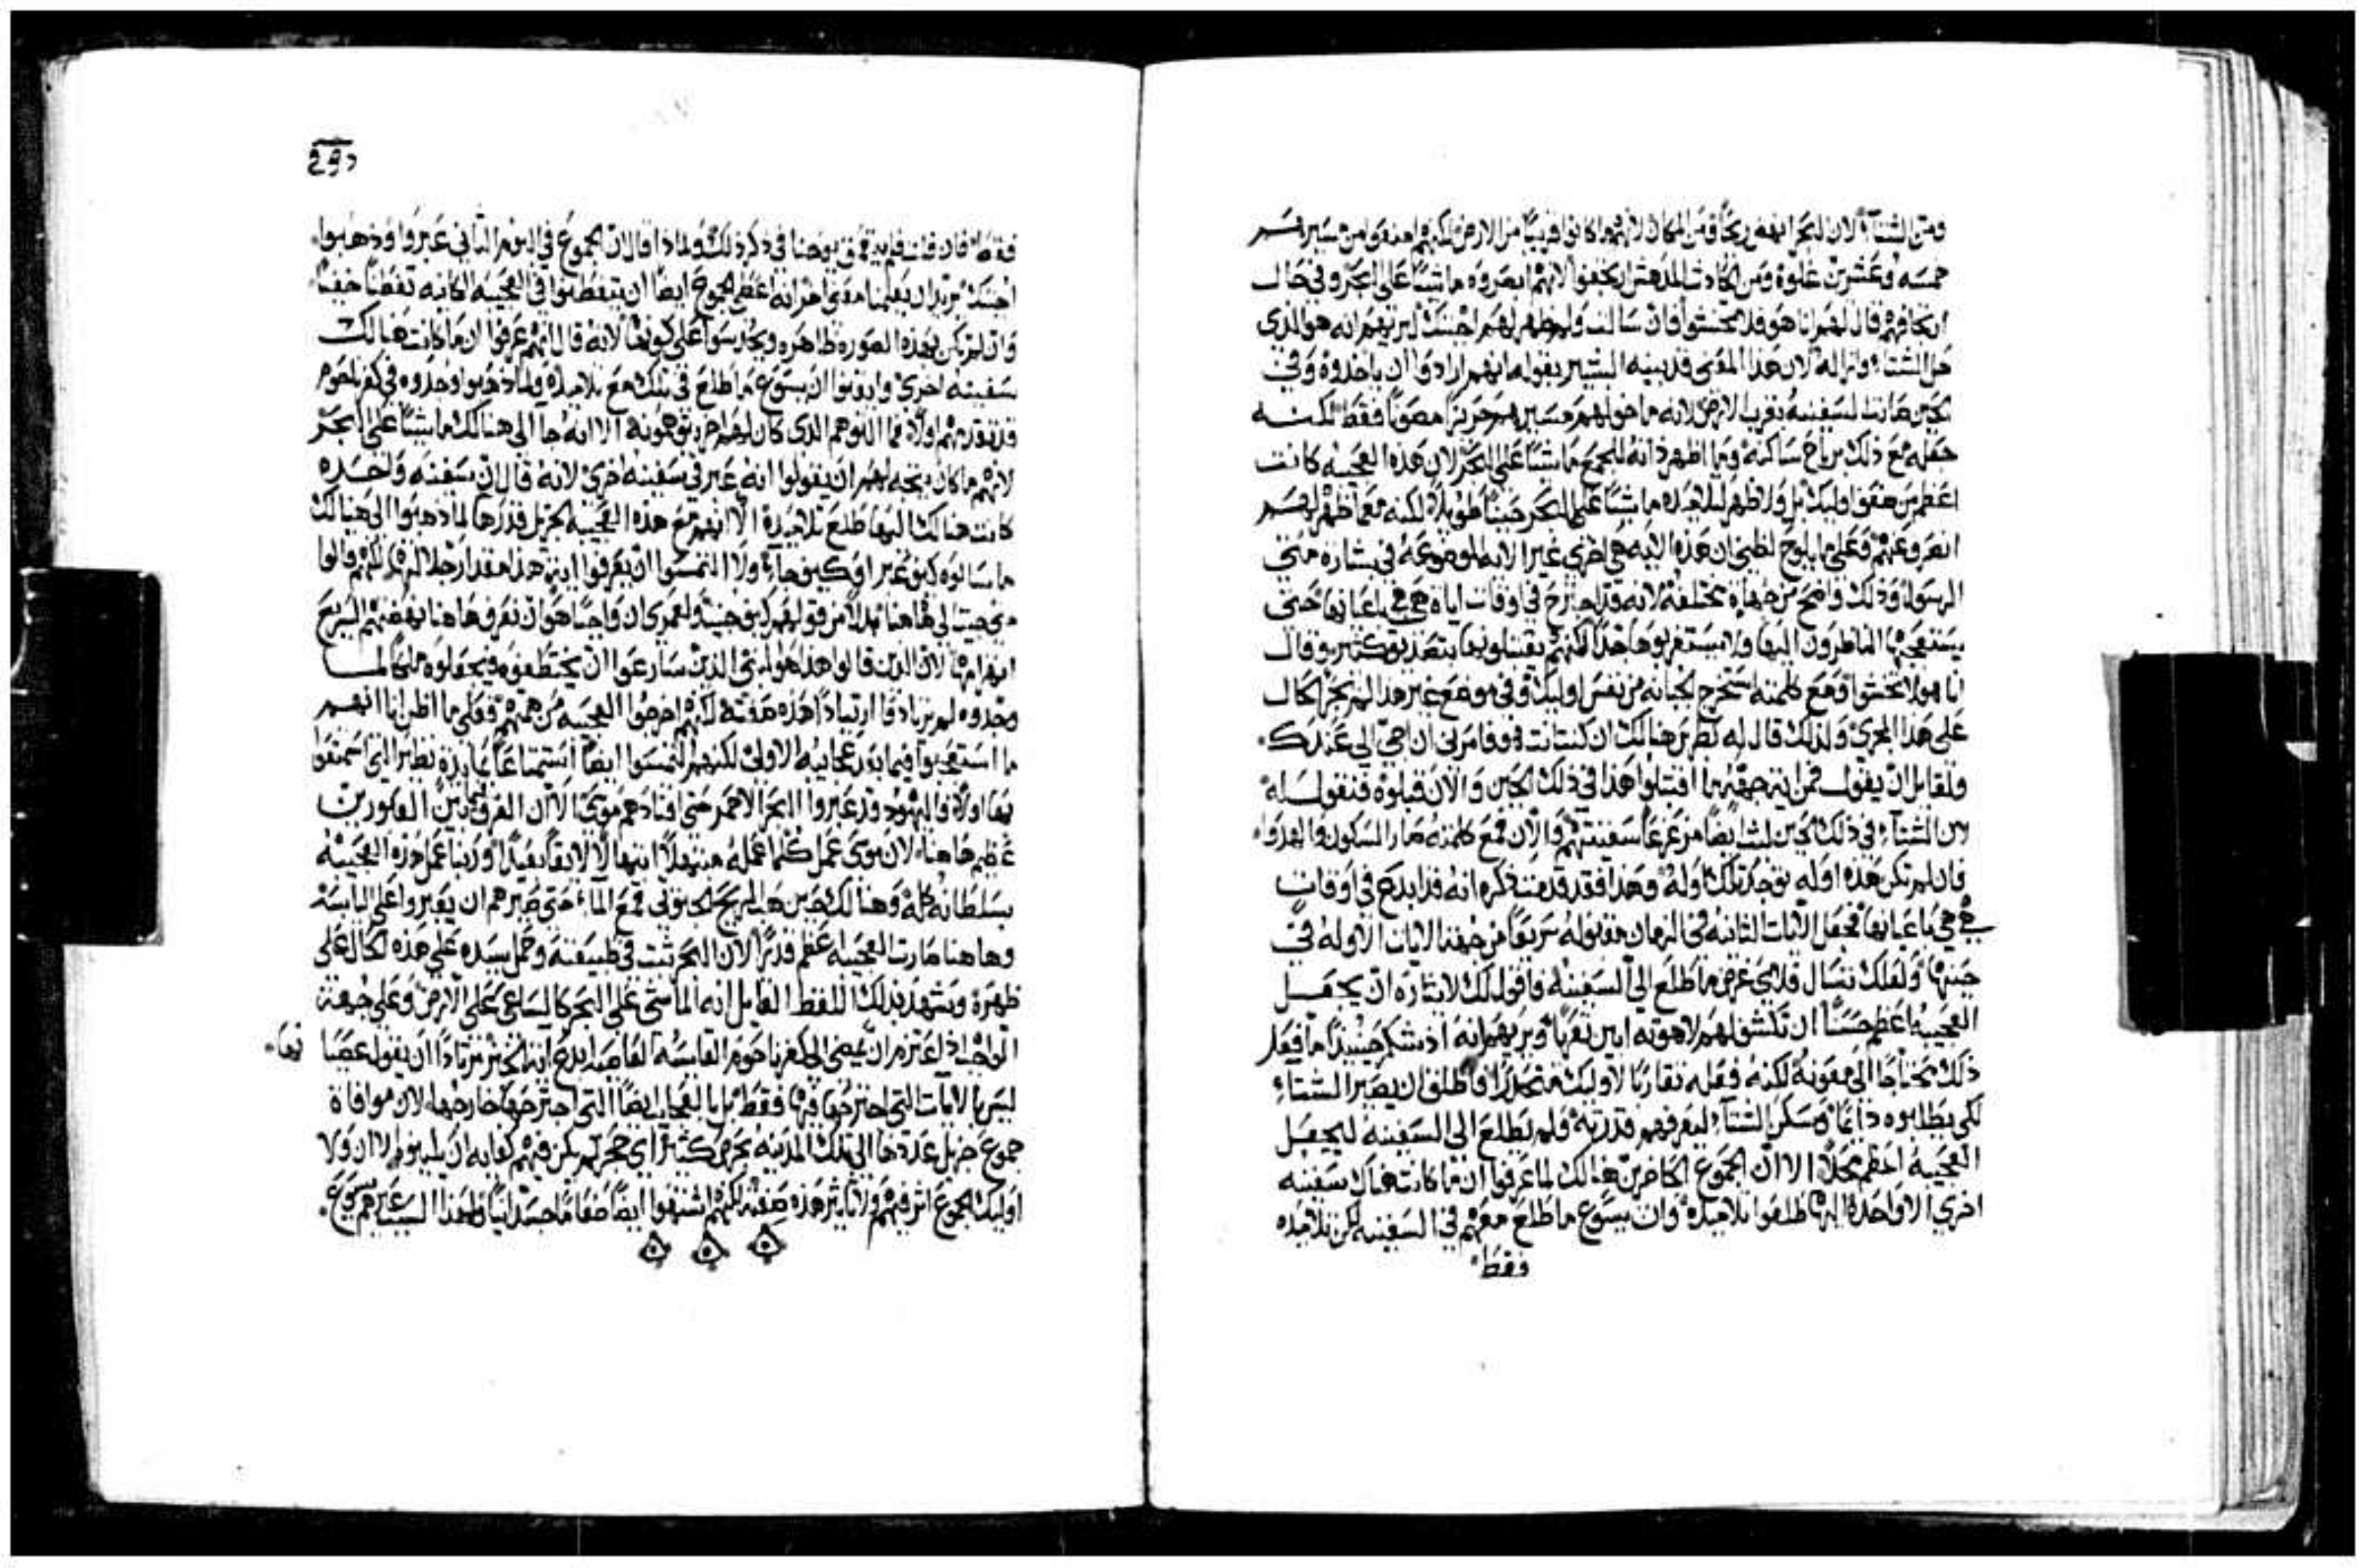 ومن الشتاء لان البحر انهض ريحا ومن المكان لانهم ما كانوا قريبا من الارض لكنهم امعنوا من سيرهم
خمسه وعشرين غلوه ومن الحادث المدهش لم يخفوا لانهم ابصروه ماشيا على البحر وفي حال
انخافهم قال لهم انا هو فلا تخشوا فان سالت ولم ظهر لهم اجبتك ليريهم انه هو الذي
حل الشتاء وازاله لان هذا المعنى قد بينه البشير بقوله انهم ارادوا ان ياخذوه وفي
الحين صارت السفينه بقرب الارض لانه ما خولهم مسيرهم حريزا مصونا فقط لكنه
جعله مع ذلك برياح ساكنه وما اظهر ذاته للجمع ماشيا على البحر لان هذه العجيبه كانت
اعظم من ضعف اوليك بل ولا ظهر لتلاميذه ماشيا على البحر حينا طويلا لكنه معما ظهر لهم
انصرف عنهم وعلى ما يلوح لظني ان هذه الايه هي اخرى غير الايه الموضوعه في بشاره متى
الرسول وذلك واضح من جهات مختلفه لانه قد اجترح في اوقات ايات هي هي باعيانها حتى
يستعجبها الناظرون اليها ولا يستغربوها جدا لكنهم يقبلونها بتصديق كثير وقال
انا هو لا تخشوا ومع كلمته استخرج الجبانه من نفس اوليك وفي موضع غير هذا لم تجر الحال
على هذا المجرى ولذلك قال له بطرس هنالك ان كنت انت هو فامرني ان اجي الى عندك
ولقايل ان يقول فمن اية جهة ما اقتبلوا هذا في ذلك الحين والان قبلوه فنقول له
لان الشتاء في ذلك الحين لبث ايضا مزعزعا سفينتهم والان فمع كلمته صار السكون والهدوا
فان لم تكن هذه اوله توجد تلك اوله وهذا فقد قدمت ذكره انه قد ابدع في اوقات
هي هي باعيانها فجعل الايات الثانيه في الزمان مقبوله سريعا من جهة الايات الاوله في
حينها ولعلك تسال فلاي غرض ما طلع الى السفينه فاقول لك لايثاره ان يجعل
العجيبه اعظم حسنا ان تكشف لهم لاهوته ابين تعريا ويريهم انه اذ شكر حينيذ ما فعل
ذلك محتاجا الى معونه لكنه فعله تقاربا لاوليك متنزلا فاطلق ان يصير الشتاء
لكي يطلبوه دايما وسكن الشتاء ليعرفهم قدرته فلم يطلع الى السفينه ليجعل
العجيبه اعظم محلا الا ان الجموع الحاضرين هنالك لما عرفوا ان ما كانت هناك سفينه
اخرى الا واحده اليها طلعوا تلاميذه وان يسوع ما طلع معهم في السفينه لكن تلاميذه
فقط
فقط فان قلت فلم يدقق يوحنا في ذكر ذلك ولماذا قال ان الجموع في اليوم الثاني عبروا وذهبوا
اجبتك يريد ان يعلمنا معنى اخر انه اعطى الجموع ايضا ان يتفطنوا في العجيبه الكاينه تفطنا خفيا
وان لم تكن بهذه الصوره ظاهره ويحدسوا على كونها لانه قال انهم عرفوا ان ما كانت هنالك
سفينه اخرى وايقنوا ان يسوع ما طلع في تلك مع تلاميذه ولما ذهبوا وجدوه في كفرناحوم
قد تقدمهم اولا فما التوهم الذي كان لهم اخر يتوهمونه الا انه جا الى هنالك ماشيا على البحر
لانهم ما كان يتجه لهم ان يقولوا انه عبر في سفينه اخرى لانه قال ان سفينه واحده
كانت هنالك اليها طلع تلاميذه الا انهم مع هذه العجيبه الجزيل قدرها لما ذهبوا الى هنالك
ما سالوه كيف عبر او كيف جا ولا التمسوا ان يعرفوا اية هذا مقدار جلالها لكنهم قالوا
متى جيت الى هاهنا بدلا من قولهم كيف جيت ولعمري ان واجبا هو ان نعرف هاهنا نهضتهم السريع
انصرامها لان الذين قالوا هذا هو النبي الذين سارعوا ان يختطفوه ويجعلوه ملكا لما
وجدوه لم يرتادوا ارتيادا هذه صفته لكنهم اخرجوا العجيبه من همتهم فعلى ما اظن انا انهم
ما استعجبوا فيما بعد عجايبه الاولى لكنهم التمسوا ايضا استمتاعا بمايده نظير التي استمتعوا
بها اولا واليهود قد عبروا البحر الاحمر حتى اقتادهم موسى الا ان الفرق بين المذكورين
عظيم هاهنا لان موسى عمل كلما عمله مبتهلا انتهالا لايقا بعبد وربنا عمل هذه العجيبه
بسلطانه كله وهنالك حين هب الريح الجنوبي قمع الماء حتى صيرهم ان يعبروا على اليابسه
وهاهنا صارت العجيبه اعظم قدرا لان البحر ثبت في طبيعته وحمل سيده على هذه الحال على
ظهره ويشهد بذلك اللفظ القايل انه الماشي على البحر كالساعي على الارض وعلى جهة
الواجب اذ اعتزم ان يمضي الى كفرناحوم القاسيه العاصيه ابدع اية الخبز مرتادا ان يقول عصيانها
ليس بالايات التي اجترحها فيها فقط بل بالعجايب ايضا التي اجترحها خارجها لان موافاة
جموع جزيل عددها الى تلك المدينه بحرص كثير اي حجر لم يكن فيهم كفايه ان يلينوه الا ان ولا
اوليك الجموع اثر فيهم ولا تاثير هذه صفته لكنهم اشتهوا ايضا طعاما جسدانيا ولهذا السبب عيرهم يسوع